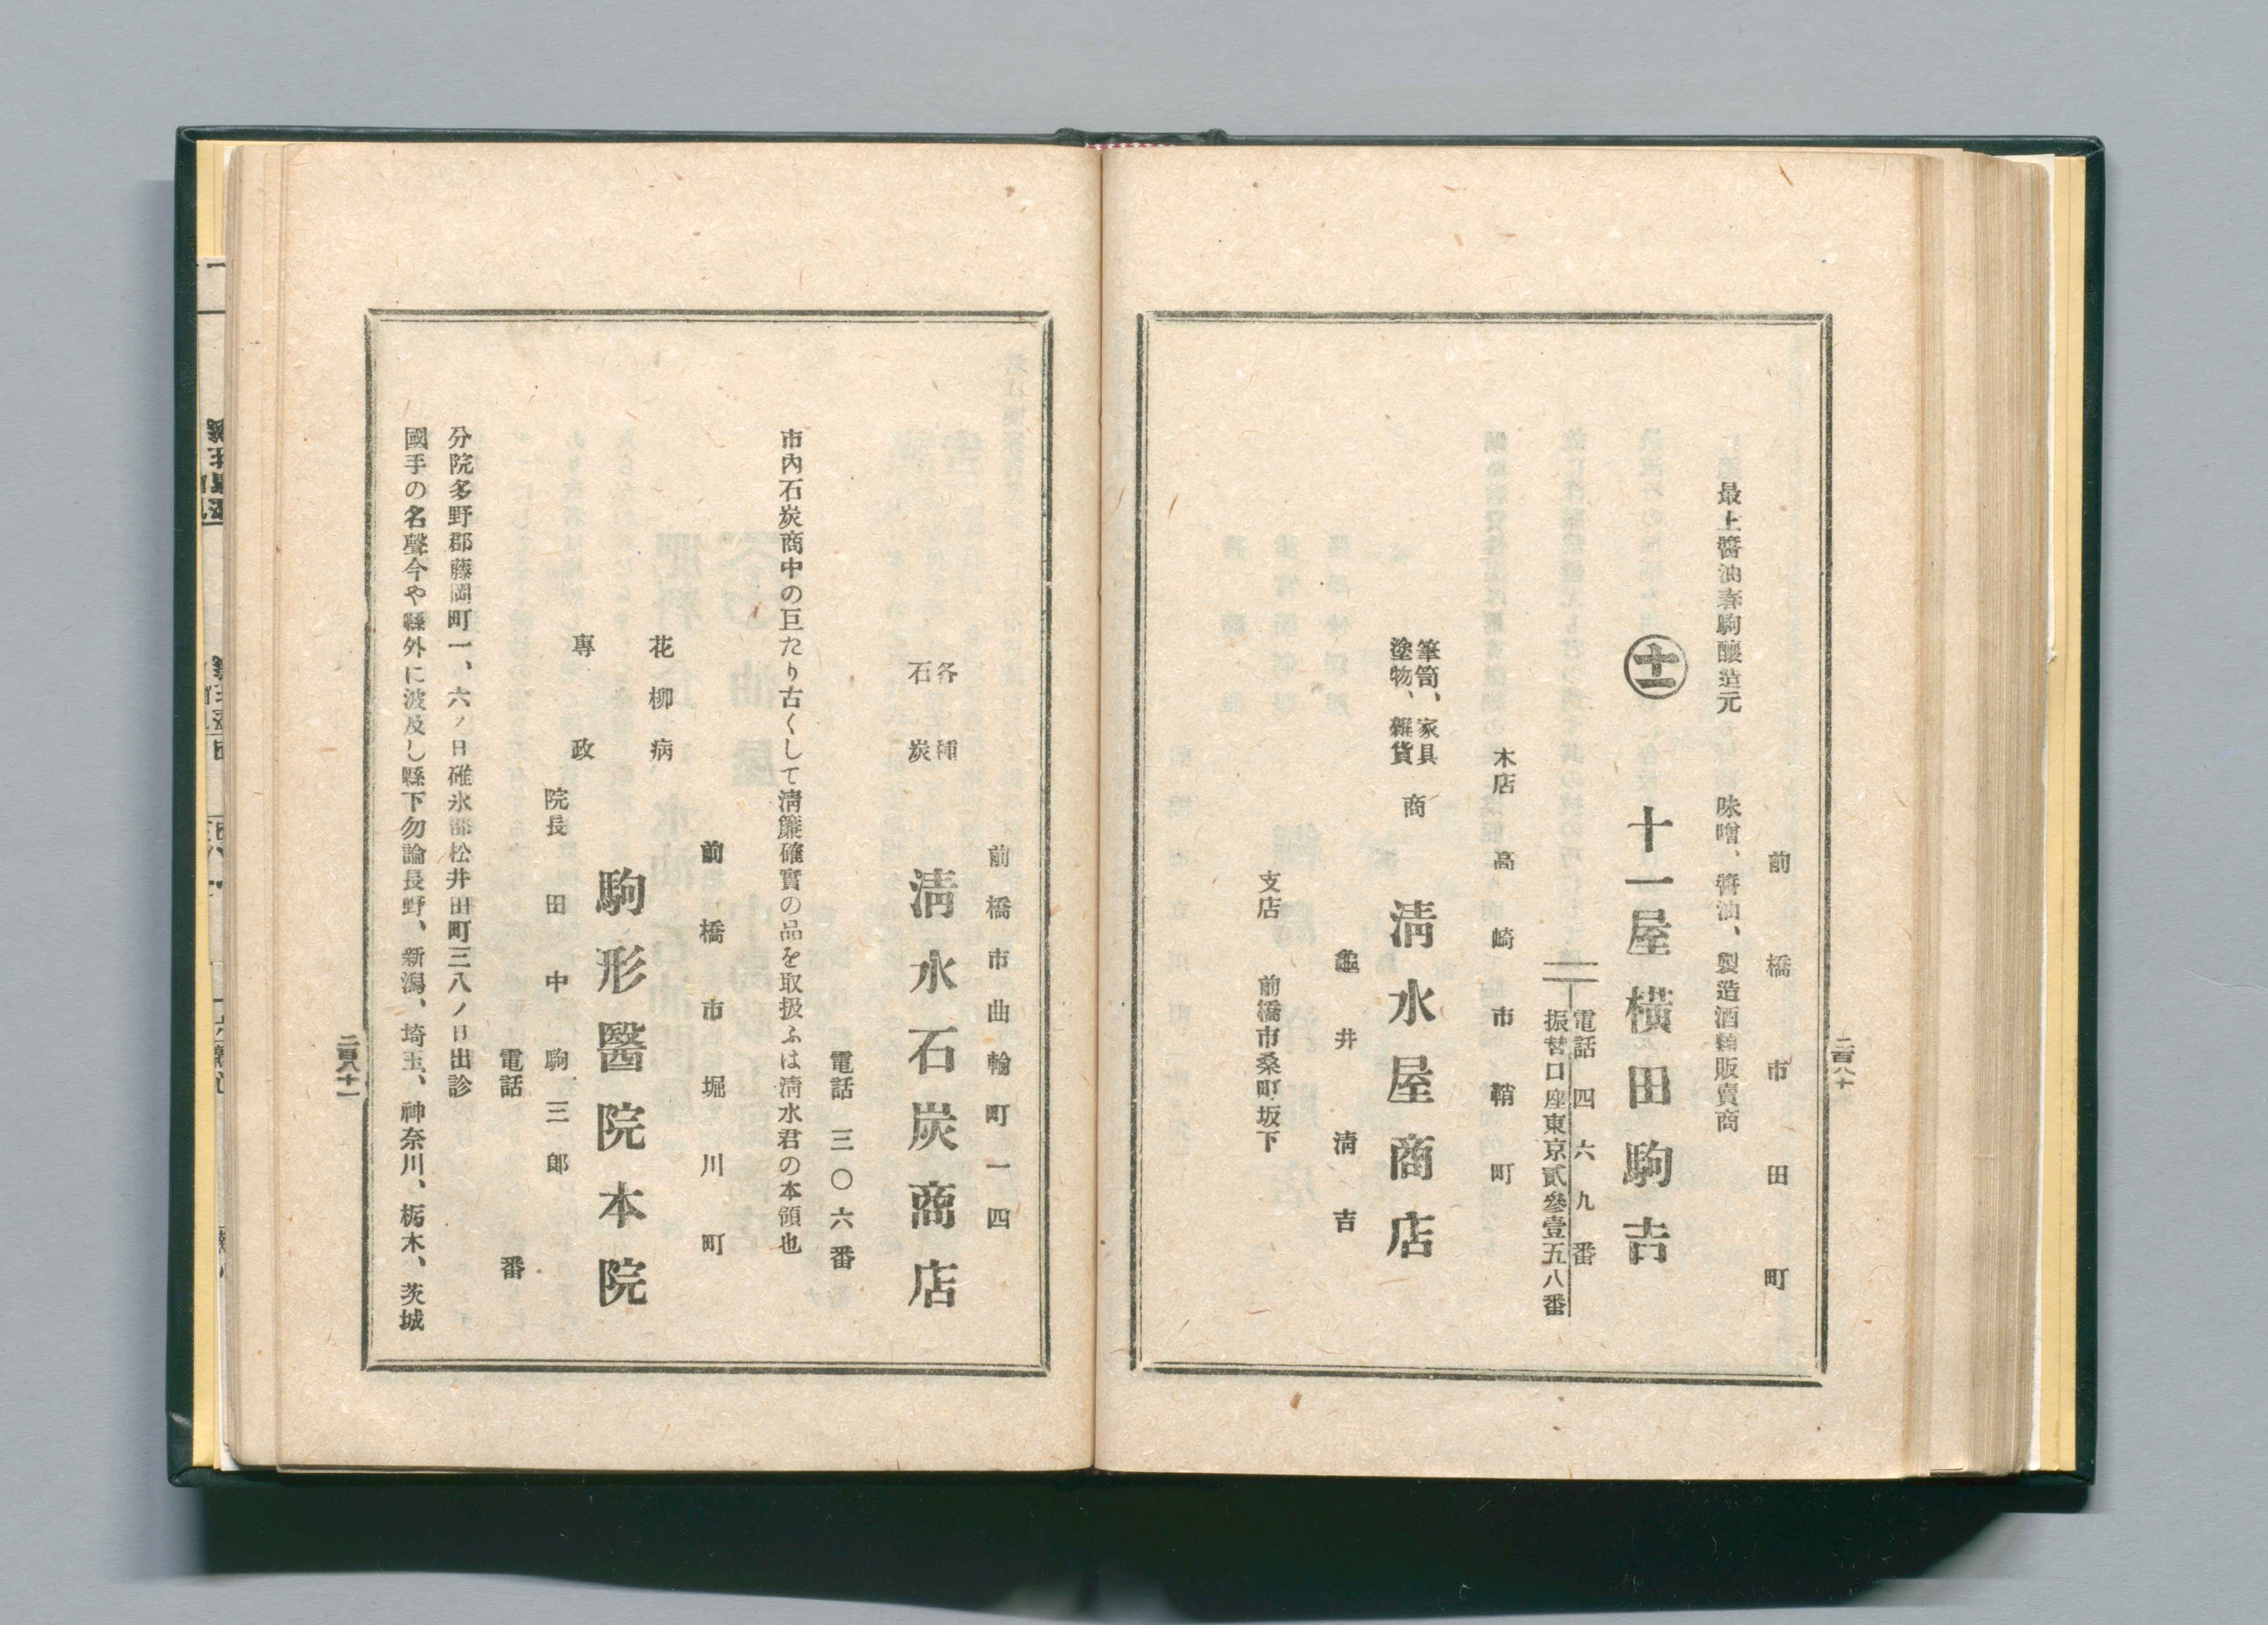 前橋市田町
最上醬油春駒釀造元　味噌、醬油、製造酒類販賣商
十一屋橫田駒吉
電話四六九番
振替口座東京貳參壹五八番
本店　高崎市鞘町
筆筒、家具
塗物、雜貨
商
淸水屋商店
龜井淸吉
支店　前橋市桑町坂下
二百八十
前橋市曲輪町一四
各種
石炭
淸水石炭商店
電話三〇六番
市內石炭商中の巨たり古くして淸廉確實の品を取扱ふは淸水君の本領也
前橋市堀川町
花柳病
專政
駒形醫院本院
院長　田中駒三郎
電話　番
分院多野郡藤岡町一、六ノ日碓氷郡松井田町三八ノ日出診
國手の名聲今や縣外に波及し縣下勿論長野、新潟、埼玉、神奈川、栃木、茨城
二百八十一